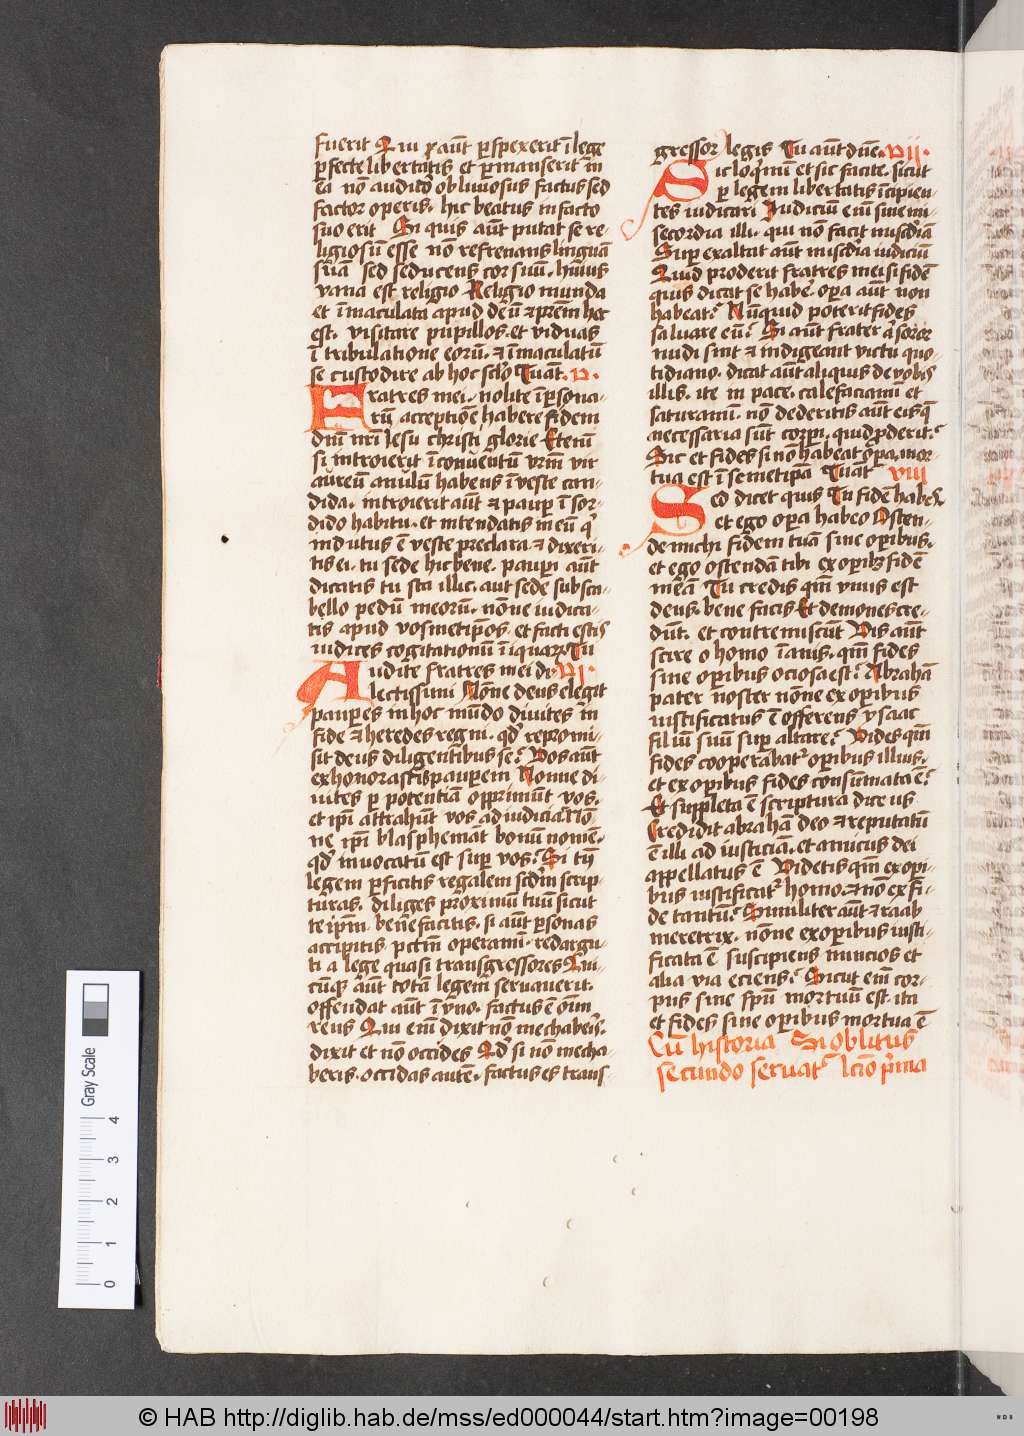 fuerit Qui ꝑ aūt ꝑspexerit ī lege
ꝑfecte libertatis et ꝑmanserit in
ea nō auditor obliuiosus factus sed
factor operis. hic beatus in facto
suo erit Si quis aūt putat se re-
ligiosū esse nō refrenans linguā
suā sed seducens cor suū. huius
vana est religio Religio munda
et īmaculata apud deū et prēm hec
est. visitare pupillos. et viduas
ī tribulatione eorū. et īmaculatū
se custodire ab hoc sclo Tu aūt. v.
Fratres mei. nolite ī ꝑsona-
rū acceptiōe habere fidem
dni nri Iesu christi glorie Etenī
si introierit ī conuentū vrm vir
aureum anulū habens ī veste can-
dida. introierit aūt et paup ī sor-
dido habitu. et intendatis in eū qi
indutus ē veste preclara. et dixeri-
tis ei. tu sede hic bene. paupi aūt
dicatis tu sta illic. aut sede sub sca-
bello pedū meorū. nōne iudica-
tis apud vosmetipos. et facti estis
iudices cogitationū iniquarū Tu
Audite fratres mei di- VI.
lectissimi Nōne deus elegit
pauperes in hoc mūdo diuites in
fide et heredes regni. qd repromi-
sit deus diligentibus se? Vos aūt
exhonorastis pauperem Nonne di-
uites ꝑ potentiā opprimūt vos.
et ipi attrahūt vos ad iudicia. Nō-
ne ipi blasphemāt bonū nomē.
qd inuocatū est sup vos? Si tn
legem ꝑficitis regalem scdm scrip-
turas. diliges proximū tuū sicut
te ipm. bene facitis. si aūt ꝑsonas
accipitis pctm operami. redargu-
ti a lege quasi transgressores Qui-
cūqz aūt totā legem seruauerit.
offendat aūt ī vno. factus ē oim
reus Qui eni dixit nō mechaberis.
dixit et nō occides Qd si nō mecha-
beris. occidas autē. factus es trans-
gressor legis Tu aūt dne. VII.
Sic loqmī et sic facite. sicut
ꝑ legem libertatis īcipien-
tes iudicari Iudiciū eni sine mi-
secordia illi. qui nō facit miscdiā
Sup exaltat aūt miscdia iudiciū
Quid proderit fratres mei si fidē
quis dicat se habe. opa aūt non
habeat? Nūquid poterit fides
saluare eū? Si aūt frater et soror
nudi sint et indigeant victu quo-
tidiano. dicat aūt aliquis de vobis
illis. ite in pace. calefacimī et
saturamī. nō dederitis aūt eis q
necessaria sūt corpi. quid proderit?
Sic et fides si nō habeat opa. mor-
tua est ī semetipa Tu aūt VIII
Sed dicet quis Tu fidē habes.
et ego opa habeo Osten-
de michi fidem tuā sine opibus.
et ego ostendā tibi ex opibz fidē
meā Tu credis qm vnus est
deus. bene facis Et demones cre-
dūt. et contremiscūt Vis aūt
scire o homo īanis. qm fides
sine opibus ociosa est? Abrahā
pater noster nōne ex opibus
iustificatus ē offerens ysaac
filiū suū sup altare? Vides qm
fides cooperabatr opibus illius.
et ex opibus fides consūmata ē?
Et suppleta ē scriptura dicens
Credidit abrahā deo et reputatū
ē illi ad iusticiā. et amicus dei
appellatus ē Videtis qm ex opi-
bus iustificatr homo. et nō ex fi-
de tantū? Similiter aūt et raab
meretrix. nōne ex opibus iusti-
ficata ē suscipiens nuncios et
alia via eciens? Sicut eni cor-
pus sine spu mortuū est. ita
et fides sine opibus mortua ē
Cū historia Si oblitus
secundo seruatr lcio pma
Gray Scale
0 1 2 3 4
© HAB http://diglib.hab.de/mss/ed000044/start.htm?image=00198